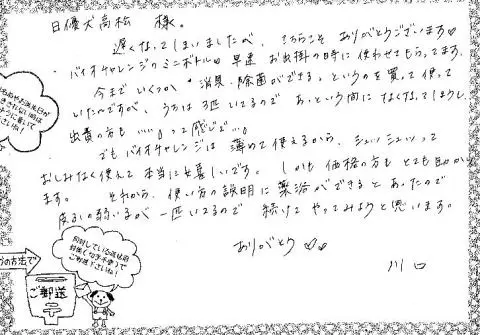 日優犬高松 様。
遅くなってしまいましたが、こちらこそ ありがとうございます♡
バイオチャレンジのミニボトル♡ 早速 お出掛の時に使わせてもらってます。
今まで いくつか "消臭・除菌ができる。というのを買って使って
いたんですが、うちは 3匹 いてるので あっという間に なくなってしまうし、
出費の方も ……って感じで…。
でも バイオチャレンジは 薄めて使えるから、シュッシュッって
おしみなく使えて 本当に嬉しいです。 しかも 価格の方も とても助かり
ます。 それから、使い方の説明に 薬浴ができると あったので
皮ふの弱いるが 一匹いてるので 続けて やってみようと思います。
ありがとう ♡♡
川口
の方法で
ご郵送
同封している返信用
封筒(切手不要)で
ご郵送下さいね!